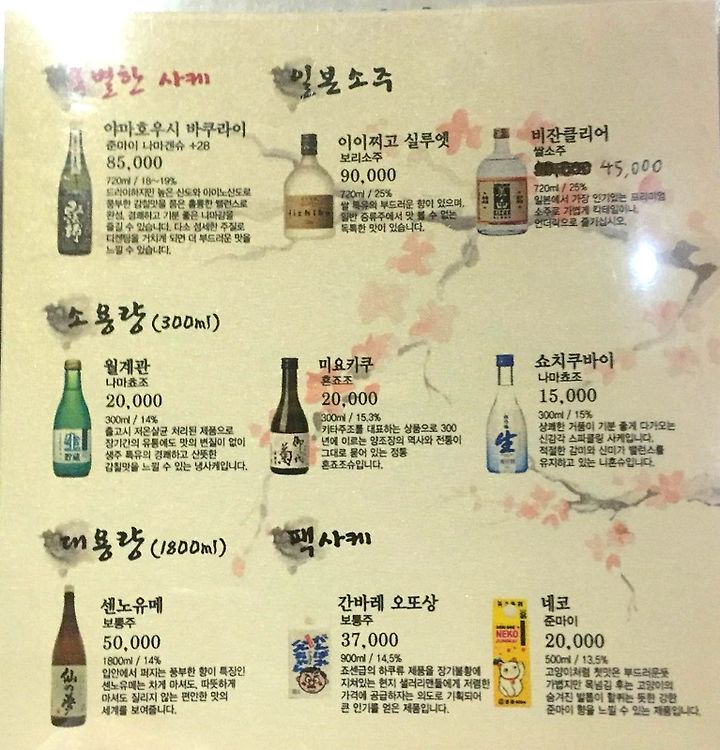 특별한 사케
야마호우시 바쿠라이
준마이 나마겐슈 +28
85,000
720ml / 18~19%
드라이하지만 높은 산도와 아미노산도로
풍부한 감칠맛을 품은 훌륭한 밸런스로
완성, 경쾌하고 기분 좋은 나마감을
즐길 수 있습니다. 다소 섬세한 주질로
디켄팅을 거치게 되면 더 부드러운 맛을
느낄 수 있습니다.
일본소주
이이찌고 실루엣
보리소주
90,000
720ml / 25%
쌀 특유의 부드러운 향이 있으며,
일반 증류주에서 맛 볼 수 없는
독특한 맛이 있습니다.
iichiko
비잔클리어
쌀소주
45,000
720ml / 25%
일본에서 가장 인기있는 프리미엄
소주로 가볍게 칵테일이나,
언더락으로 즐기십시오.
소용량 (300ml)
월계관
나마쵸조
20,000
300ml / 14%
출고시 저온살균 처리된 제품으로
장기간의 유통에도 맛의 변질이 없이
생주 특유의 경쾌하고 산뜻한
감칠맛을 느낄 수 있는 냉사케입니다.
生
미요키쿠
혼죠조
20,000
300ml / 15,3%
카타주조를 대표하는 상품으로 300
년에 이르는 양조장의 역사와 전통이
그대로 묻어 있는 정통
혼죠조슈입니다.
御代菊
쇼치쿠바이
나마쵸조
15,000
300ml / 15%
상쾌한 거품이 기분 좋게 다가오는
신감각 스파클링 사케입니다.
적절한 감미와 신미가 밸런스를
유지하고 있는 니혼슈입니다.
生
대용량 (1800ml)
센노유메
보통주
50,000
1800ml / 14%
입안에서 퍼지는 풍부한 향이 특징인
센노유메는 차게 마셔도, 따뜻하게
마셔도 질리지 않는 편안한 맛의
세계를 보여줍니다.
仙の夢
팩사케
간바레 오또상
보통주
37,000
900ml / 14,5%
죠센급의 하쿠류 제품을 장기불황에
지쳐있는 현지 샐러리맨들에게 저렴한
가격에 공급하자는 의도로 기획되어
큰 인기를 얻은 제품입니다.
네코
준마이
20,000
500ml / 13,5%
고양이처럼 첫맛은 부드러운듯
가볍지만 목넘김 후는 고양이의
숨겨진 발톱이 할퀴는 듯한 강한
준마이 향을 느낄 수 있는 제품입니다.
NEKO